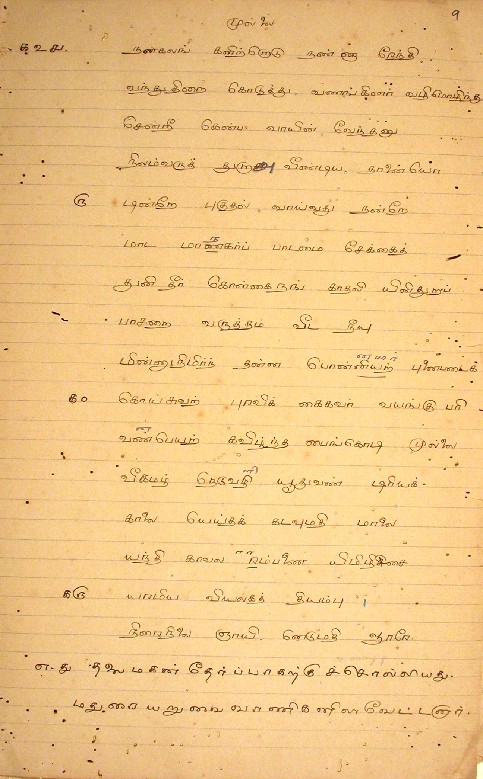 முல்லை
9
௧௨௪. நன்கலங் களிற்றொடு நண்ணா ரேந்தி
வந்துதிறை கொடுத்து வணங்கினர் வழிமொழிந்து
சென்றீ கென்ப வாயின் வேந்தனு
நிலம்வகுந் துறாஅ வீண்டிய தானையொ
௫ டின்றே புகுதல் வாய்வது நன்றே
மாட மாணகர்ப் பாடமை சேக்கைத்
துனிதீர் கொள்கைநங் காதலி யினிதுறப்
பாசறை வருத்தம் வீட நீயு
மின்னுநிமிர்ந் தன்ன பொன்னியற் புனைபடைக்
௧௦ கொய்சுவற் புரவிக் கைகவர் வயங்கு பரி
வண்பெயற் கவிழ்ந்த பைங்கொடி முல்லை
வீகமழ் நெடுவழி யூதுவண் டிரியக்
காலை யெய்தக் கடவுமதி மாலை
யந்தி காவல ரம்பணை யிமிழிசை
௧௫ யரமிய வியலகத் தியம்பு
நிரைநிலை ஞாயி னெடுமதி லூரே.
எ-து தலைமகன் தேர்ப்பாகற்குச்சொல்லியது.
மதுரையறுவைவாணிகனிளவேட்டனார்.